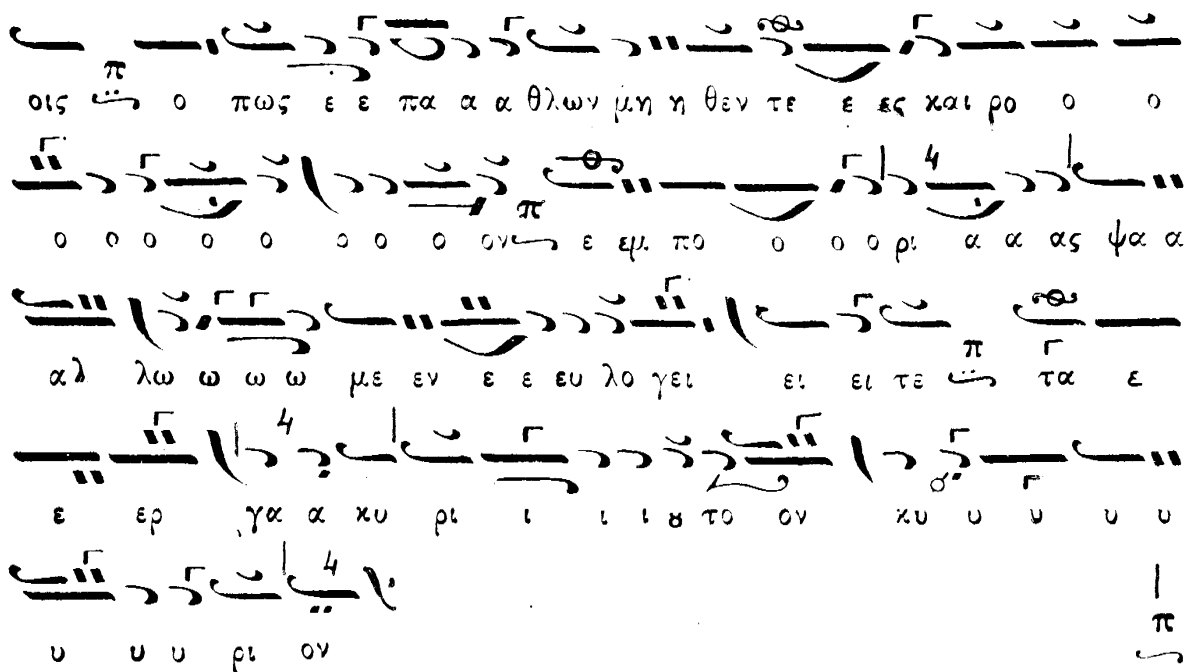 οις ο πως ε ε πα α α θλων μη η θεν τε ε ες και ρο ο ο
ο ο ο ο ο ο ο ο ον ε εμ πο ο ο ο ρι α α ας ψα α
αλ λω ω ω ω με εν ε ε ευ λο γει ει ει τε τα ε
ε ερ γα α κυ ρι ι ι ι ȣ το ον κυ υ υ υ υ
υ υ υ ρι ον